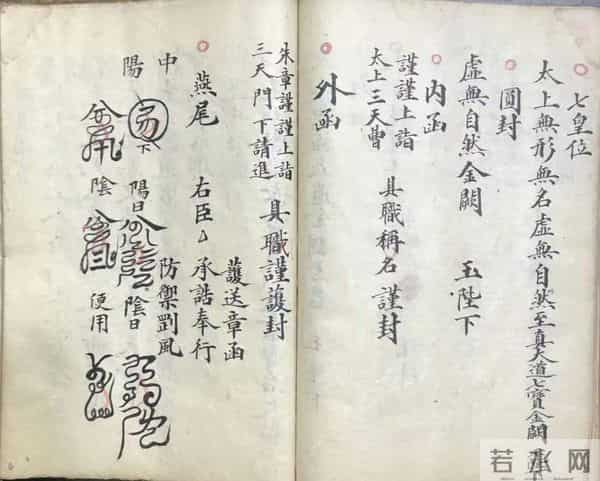 七皇位
太上無形無名虛無自然至真大道七寶金闕
圓封
虛無自然金闕 玉陛下
內函
謹謹上詣
太上三天曹 具職稱名 謹封
外函
朱章謹謹上詣
三天門下請進 具職謹護封
燕尾 右臣 承誥奉行
護送章函
防禦罰風
中 下 陽日 陰日
陽 陰 便用
若 网